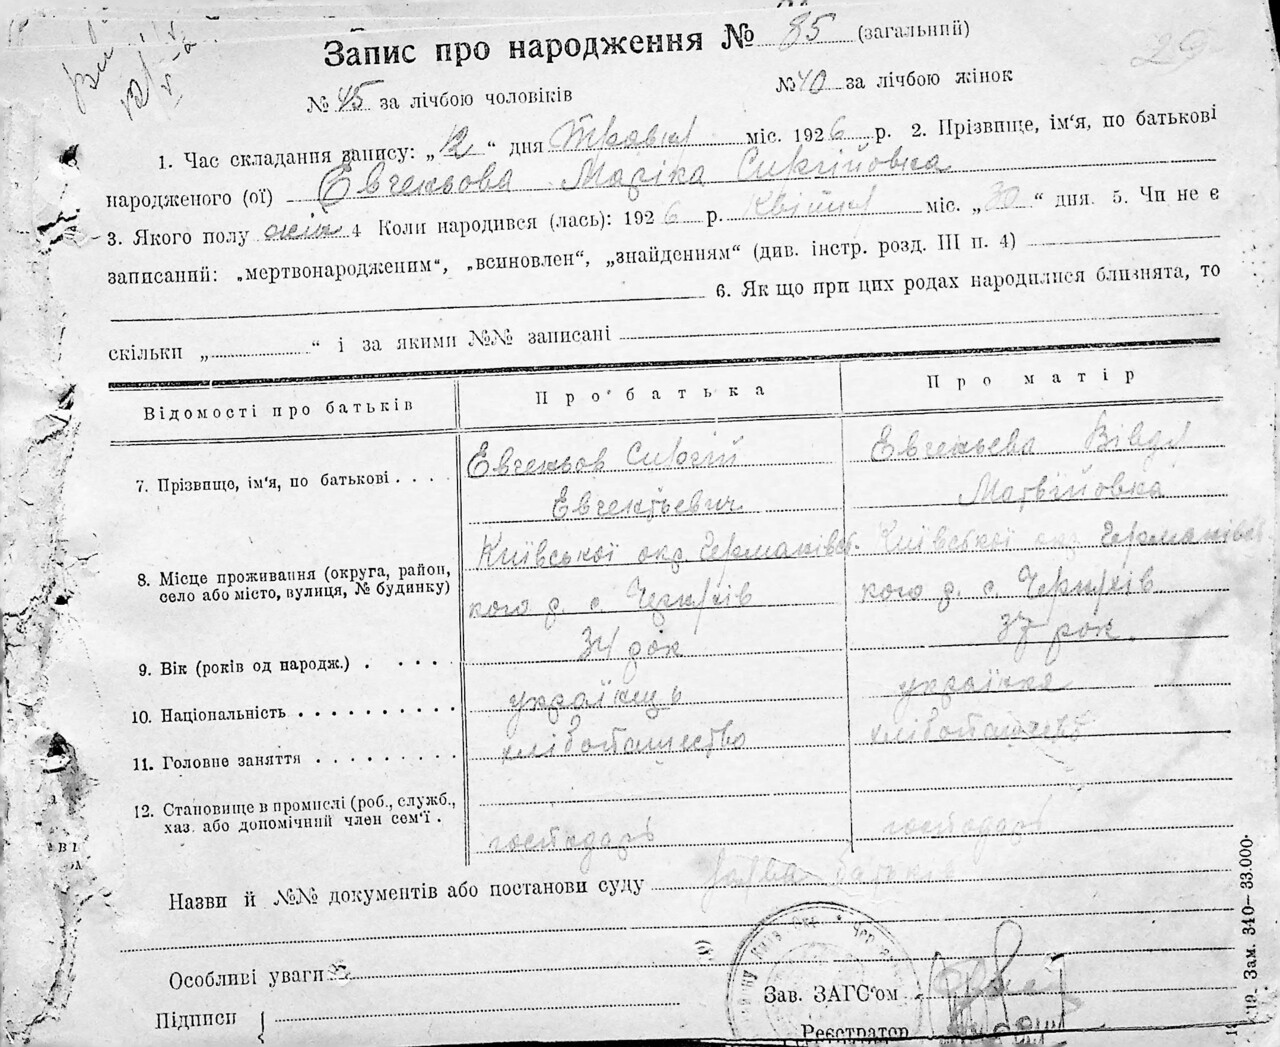 Запис про народження № 85 (загальний)
№ 45 за лічбою чоловіків № 40 за лічбою жінок
29
1. Час складання запису: „12“ дня Травня міс. 1926 р. 2. Прізвище, ім'я, по батькові
народженого (ої) Євгеньова Маріка Сиргійовна
3. Якого полу жін 4 Коли народився (лась): 1926 р. Квітня міс. „30“ дня. 5. Чи не є
записаний: „мертвонародженим“, „всиновлен“, „знайденням“ (див. інстр. розд. III п. 4)
6. Як що при цих родах народилися близнята, то
скільки „ “ і за якими №№ записані
Відомості про батьків Про батька Про матір
7. Прізвище, ім'я, по батькові . . . . Евгеньов Сиргій Евгеньева
Евгентьевич Матвійовна
8. Місце проживання (округа, район, село або місто, вулиця, № будинку) Київської окр. Германівсь- Київської окр. Германівсь
кого р. с. кого р. с.
9. Вік (років од народж.) . . . . 34 рок 37 рок.
10. Національність . . . . . . . . . . українць українка
11. Головне заняття . . . . . . . . . хліботашество
12. Становище в промислі (роб., служб., хаз. або допомічний член сем'ї . господарь господарь
Назви й №№ документів або постанови суду батьків
Особливі уваги
Зав. ЗАГС'ом
Підписи
Реєстратор
Зам. 340—33.000.